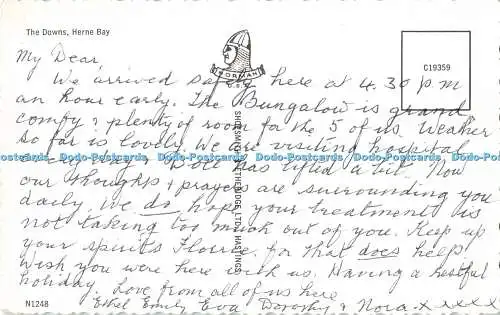 The Downs, Herne Bay
NORMAN
C19359
My Dear,
We arrived safely here at 4.30 pm
an hour early. The Bungalow is grand
comfy & plenty of room for the 5 of us. Weather
so far is lovely. We are visiting hospital
has lifted a bit. Now
our thoughts & prayers are surrounding you
daily. We do hope your treatment is
not taking too much out of you. Keep up
your spirits Florrie for that does help
Wish you were here with us. Having a restful
holiday. Love from all of us here
Ethel Emily Eva Dorothy & Nora x x x x x
SHOESMITH & ETHERIDGE LTD., HASTINGS
N1248
Postcards Database
www.postcards-database.com